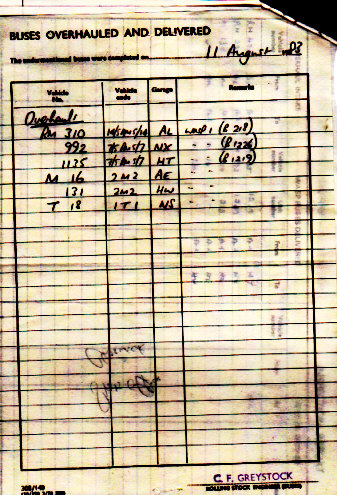 BUSES OVERHAULED AND DELIVERED
The undermentioned buses were completed on 11 August 1983
Vehicle No. Vehicle code Garage Remarks
Overhauls
RM 310 AL WASP 1 (B 218)
992 NX " " (B1226)
1125 HT " " (B1219)
M 16 2M2 AE " "
131 2M2 HW " "
T 18 1T1 NS " "
C. F. GREYSTOCK
ROLLING STOCK ENGINEER (BUSES)